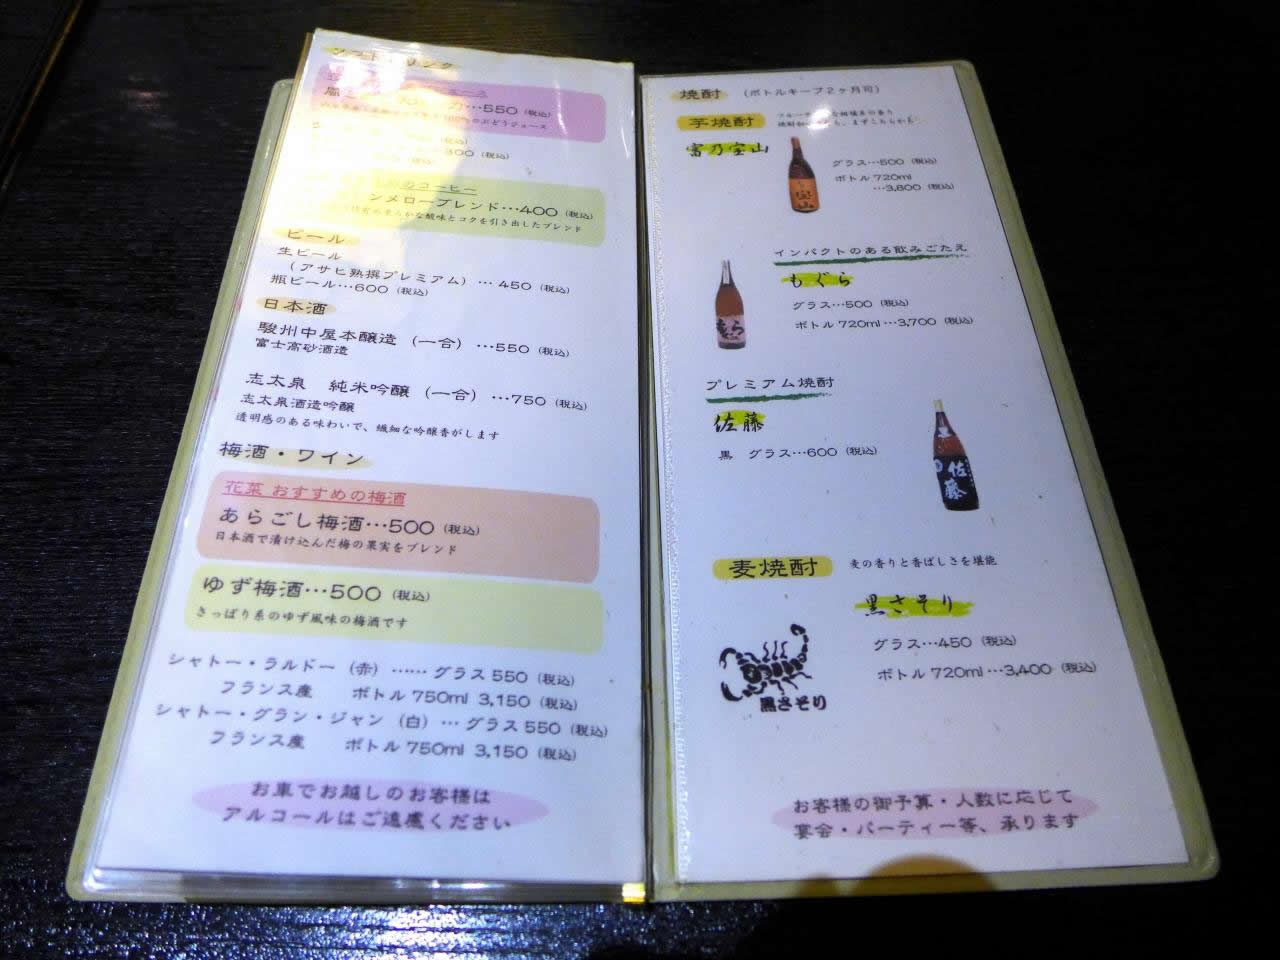 ソフトドリンク
…550（税込）
のぶどうジュース
（税込）
（税込）
300（税込）
のコーヒー
ンメローブレンド…400（税込）
な酸味とコクを引き出したブレンド
ビール
生ビール
（アサヒ熟撰プレミアム）…450（税込）
瓶ビール…600（税込）
日本酒
駿州中屋本醸造（一合）…550（税込）
富士高砂酒造
志太泉　純米吟醸（一合）…750（税込）
志太泉酒造吟醸
透明感のある味わいで、繊細な吟醸香がします
梅酒・ワイン
花菜 おすすめの梅酒
あらごし梅酒…500（税込）
日本酒で漬け込んだ梅の果実をブレンド
ゆず梅酒…500（税込）
さっぱり系のゆず風味の梅酒です
シャトー・ラルドー（赤）……グラス 550（税込）
フランス産　ボトル 750ml 3,150（税込）
シャトー・グラン・ジャン（白）…グラス 550（税込）
フランス産　ボトル 750ml 3,150（税込）
お車でお越しのお客様は
アルコールはご遠慮ください
焼酎　（ボトルキープ２ヶ月可）
芋焼酎
な柑橘系の香り
、まずこちらから
富乃宝山
宝山
グラス…500（税込）
ボトル 720ml
…3,800（税込）
インパクトのある飲みごたえ
もぐら
もぐら
グラス…500（税込）
ボトル 720ml…3,700（税込）
プレミアム焼酎
佐藤
黒　グラス…600（税込）
佐藤
麦焼酎　麦の香りと香ばしさを堪能
黒さそり
グラス…450（税込）
ボトル 720ml…3,400（税込）
黒さそり
お客様の御予算・人数に応じて
宴会・パーティー等、承ります